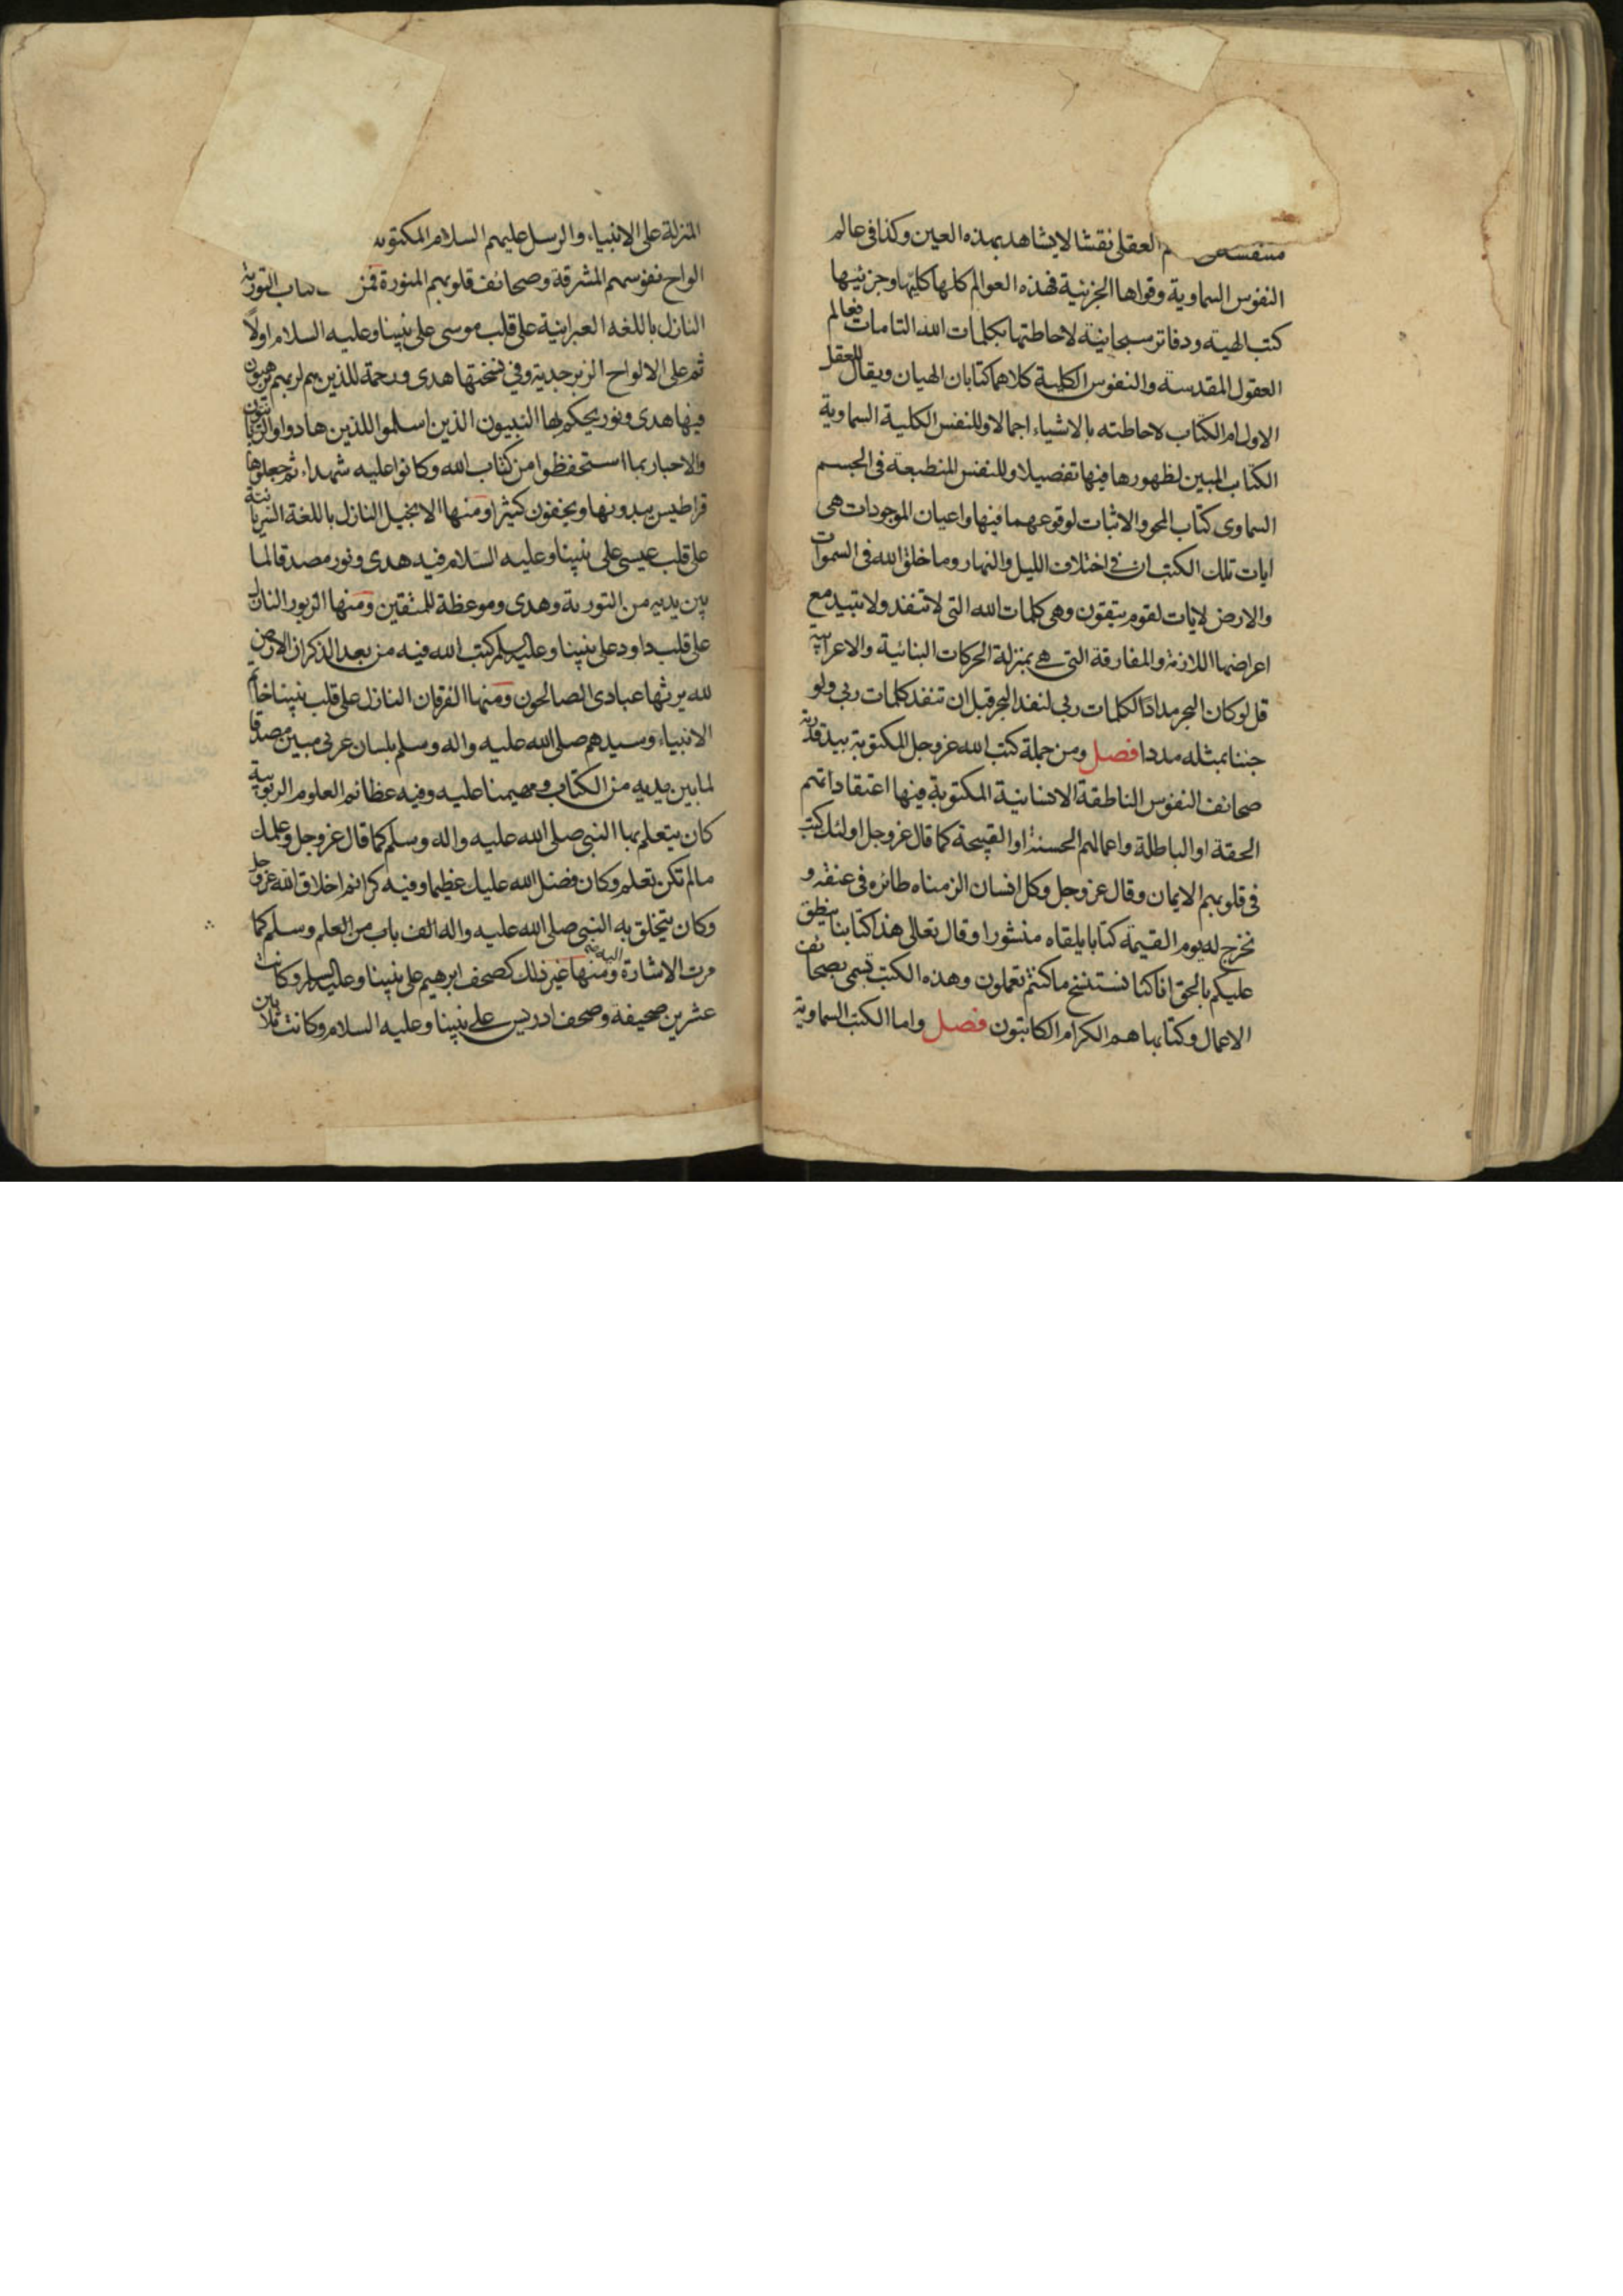 منتقشة العقلى نقشا لا يشاهد بهذه العين وكذا فى عالم
النفوس السماوية وقواها الجزئية فهذه العوالم كلها كليتها وجزئيها
كتب الهية ودفاتر سبحانية لاحاطتها بكلمات الله التامات فعالم
العقول المقدسة والنفوس الكلية كلاهما كتابان الهيان ويقال للعقل
الاول ام الكتاب لاحاطته بالاشياء اجمالا وللنفس الكلية السماوية
الكتاب المبين لظهورها فيها تفصيلا وللنفس المنطبعة فى الجسم
السماوى كتاب المحو والاثبات لوقوعهما فيها واعيان الموجودات هى
ايات تلك الكتب ان فى اختلاف الليل والنهار وما خلق الله فى السموات
والارض لايات لقوم يتقون وهى كلمات الله التى لا تنفد ولا تبيد مع
اعراضها اللازمة والمفارقة التى هى بمنزلة الحركات البنائية والاعرابية
قل لو كان البحر مدادا لكلمات ربى لنفد البحر قبل ان تنفد كلمات ربى ولو
جئنا بمثله مددا فصل ومن جملة كتب الله عز وجل المكتوبة بيد قدرته
صحائف النفوس الناطقة الانسانية المكتوبة فيها اعتقاداتهم
الحقة او الباطلة واعمالهم الحسنة او القبيحة كما قال عز وجل اولئك كتب
فى قلوبهم الايمان وقال عز وجل وكل انسان الزمناه طائره فى عنقه و
نخرج له يوم القيمة كتابا يلقاه منشورا وقال تعالى هذا كتابنا ينطق
عليكم بالحق انا كنا نستنسخ ما كنتم تعملون وهذه الكتب تسمى بصحائف
الاعمال وكتابها هم الكرام الكاتبون فصل واما الكتب السماوية
المنزلة على الانبياء والرسل عليهم السلام المكتوبة
الواح نفوسهم المشرقة وصحائف قلوبهم المنورة فمن كتاب التورية
النازل باللغه العبرانية على قلب موسى على نبينا وعليه السلام اولا
ثم على الالواح الزبرجدية وفى نسختها هدى ورحمة للذين هم لربهم يرهبون
فيها هدى ونور يحكم بها النبيون الذين اسلموا للذين هادوا والربانيون
والاحبار بما استحفظوا من كتاب الله وكانوا عليه شهداء ثم جعلوها
قراطيس يبدونها ويخفون كثيرا ومنها الانجيل النازل باللغة السريانية
على قلب عيسى على نبينا وعليه السلام فيه هدى ونور مصدقا لما
بين يديه من التورية وهدى وموعظة للمتقين ومنها الزبور النازل
على قلب داود على نبينا وعليه السلم كتب الله فيه من بعد الذكر ان الارض
لله يرثها عبادى الصالحون ومنها الفرقان النازل على قلب نبينا خاتم
الانبياء وسيدهم صلى الله عليه واله وسلم بلسان عربى مبين مصدقا
لما بين يديه من الكتاب ومهيمنا عليه وفيه عظائم العلوم الربوبية
كان يتعلم بها النبى صلى الله عليه واله وسلم كما قال عز وجل وعلمك
ما لم تكن تعلم وكان فضل الله عليك عظيما وفيه كرائم اخلاق الله عز وجل
وكان يتخلق به النبى صلى الله عليه واله الف باب من العلم وسلم كما
مرت الاشارة اليه ومنها غير ذلك كصحف ابرهيم على نبينا وعليه السلم وكانت
عشرين صحيفة وصحف ادريس على نبينا وعليه السلام وكانت ثلاثين